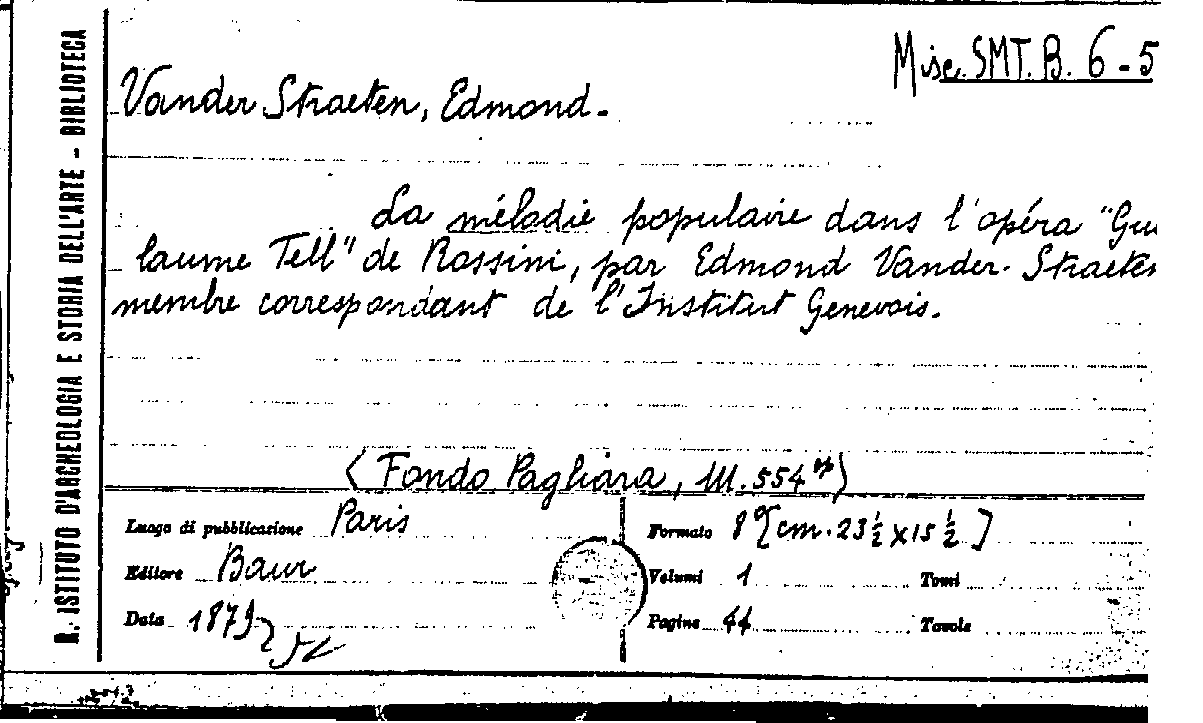 R. ISTITUTO D'ARCHEOLOGIA E STORIA DELL'ARTE - BIBLIOTECA
Misc. SMT. B. 6-5
Vander Straeten, Edmond.-
La mélodie populaire dans l'opéra "Gui
laume Tell" de Rossini, par Edmond Vander-Straeten
membre correspondant de l'Institut Genevois.
(Fondo Pagliara, M. 554
Luogo di pubblicazione Paris
Formato 8° [cm. 23 ½ x 15 ½]
Editore Baur
Volumi 1 Tomi
Data 1879
Pagine 44 Tavole